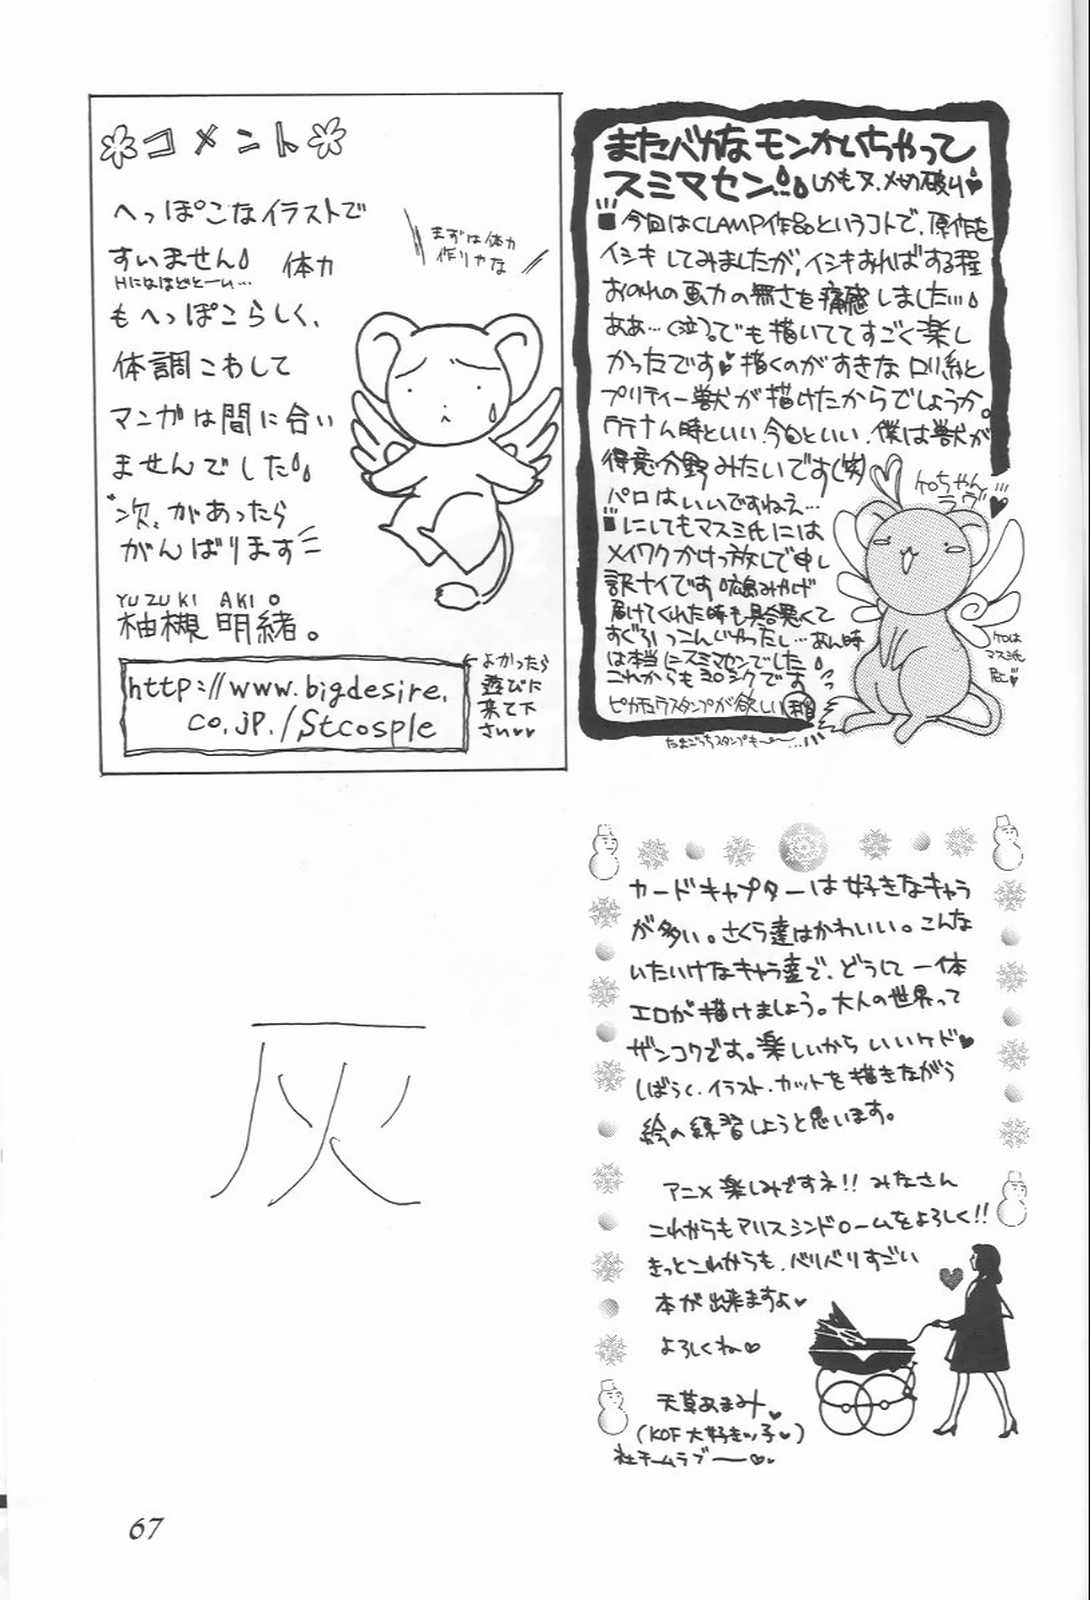 コメント
へっぽこなイラストで
すいません 体力
もへっぽこらしく、
体調こわして
マンガは間に合い
ませんでした
"次"があったら
がんばります
YUZUKI AKIO
柚槻 明緒。
まずは体力
作りやな
http://www.bigdesire.
co.jp./Stcosple
よかったら
遊びに
来て下
さい♥♥
またバカなモンかいちゃって
スミマセン しかもヌ、メ切破り♥
今回はCLAMP作品というコトで、原作を
イシキしてみましたが、イシキすればする程
おのれの画力の無さを痛感しました…
ああ…(泣)。でも描いててすごく楽し
かったです♥描くのがすきなロリ絵と
プリティー獣が描けたからでしょうか。
時といい、今回といい、僕は獣が
得意分野みたいです(笑)
パロはいいですねえ…
にしてもマスミ氏には
メイワクかけっ放しで申し
訳ナイです
届けてくれた時も具合悪くて
…あん時
は本当にスミマセンでした
これからもヨロシクです
ピカチュウスタンプが欲しい
たまごっちスタンプも〜…
ケロちゃん
ラヴ♥
ケロは
マス氏
灰
カードキャプターは好きなキャラ
が多い。さくら達はかわいい。こんな
いたいけなキャラ達で、どうして一体
エロが描けましょう。大人の世界って
ザンコクです。楽しいからいいケド♥
しばらく、イラスト、カットを描きながら
絵の練習しようと思います。
アニメ楽しみですネ!! みなさん
これからもアリスシンドロームをよろしく!!
きっとこれからも、バリバリすごい
本が出来ますよ♥
よろしくね♡
天草あまみ
(KOF大好きッ子♥)
社チームラブー♡
67